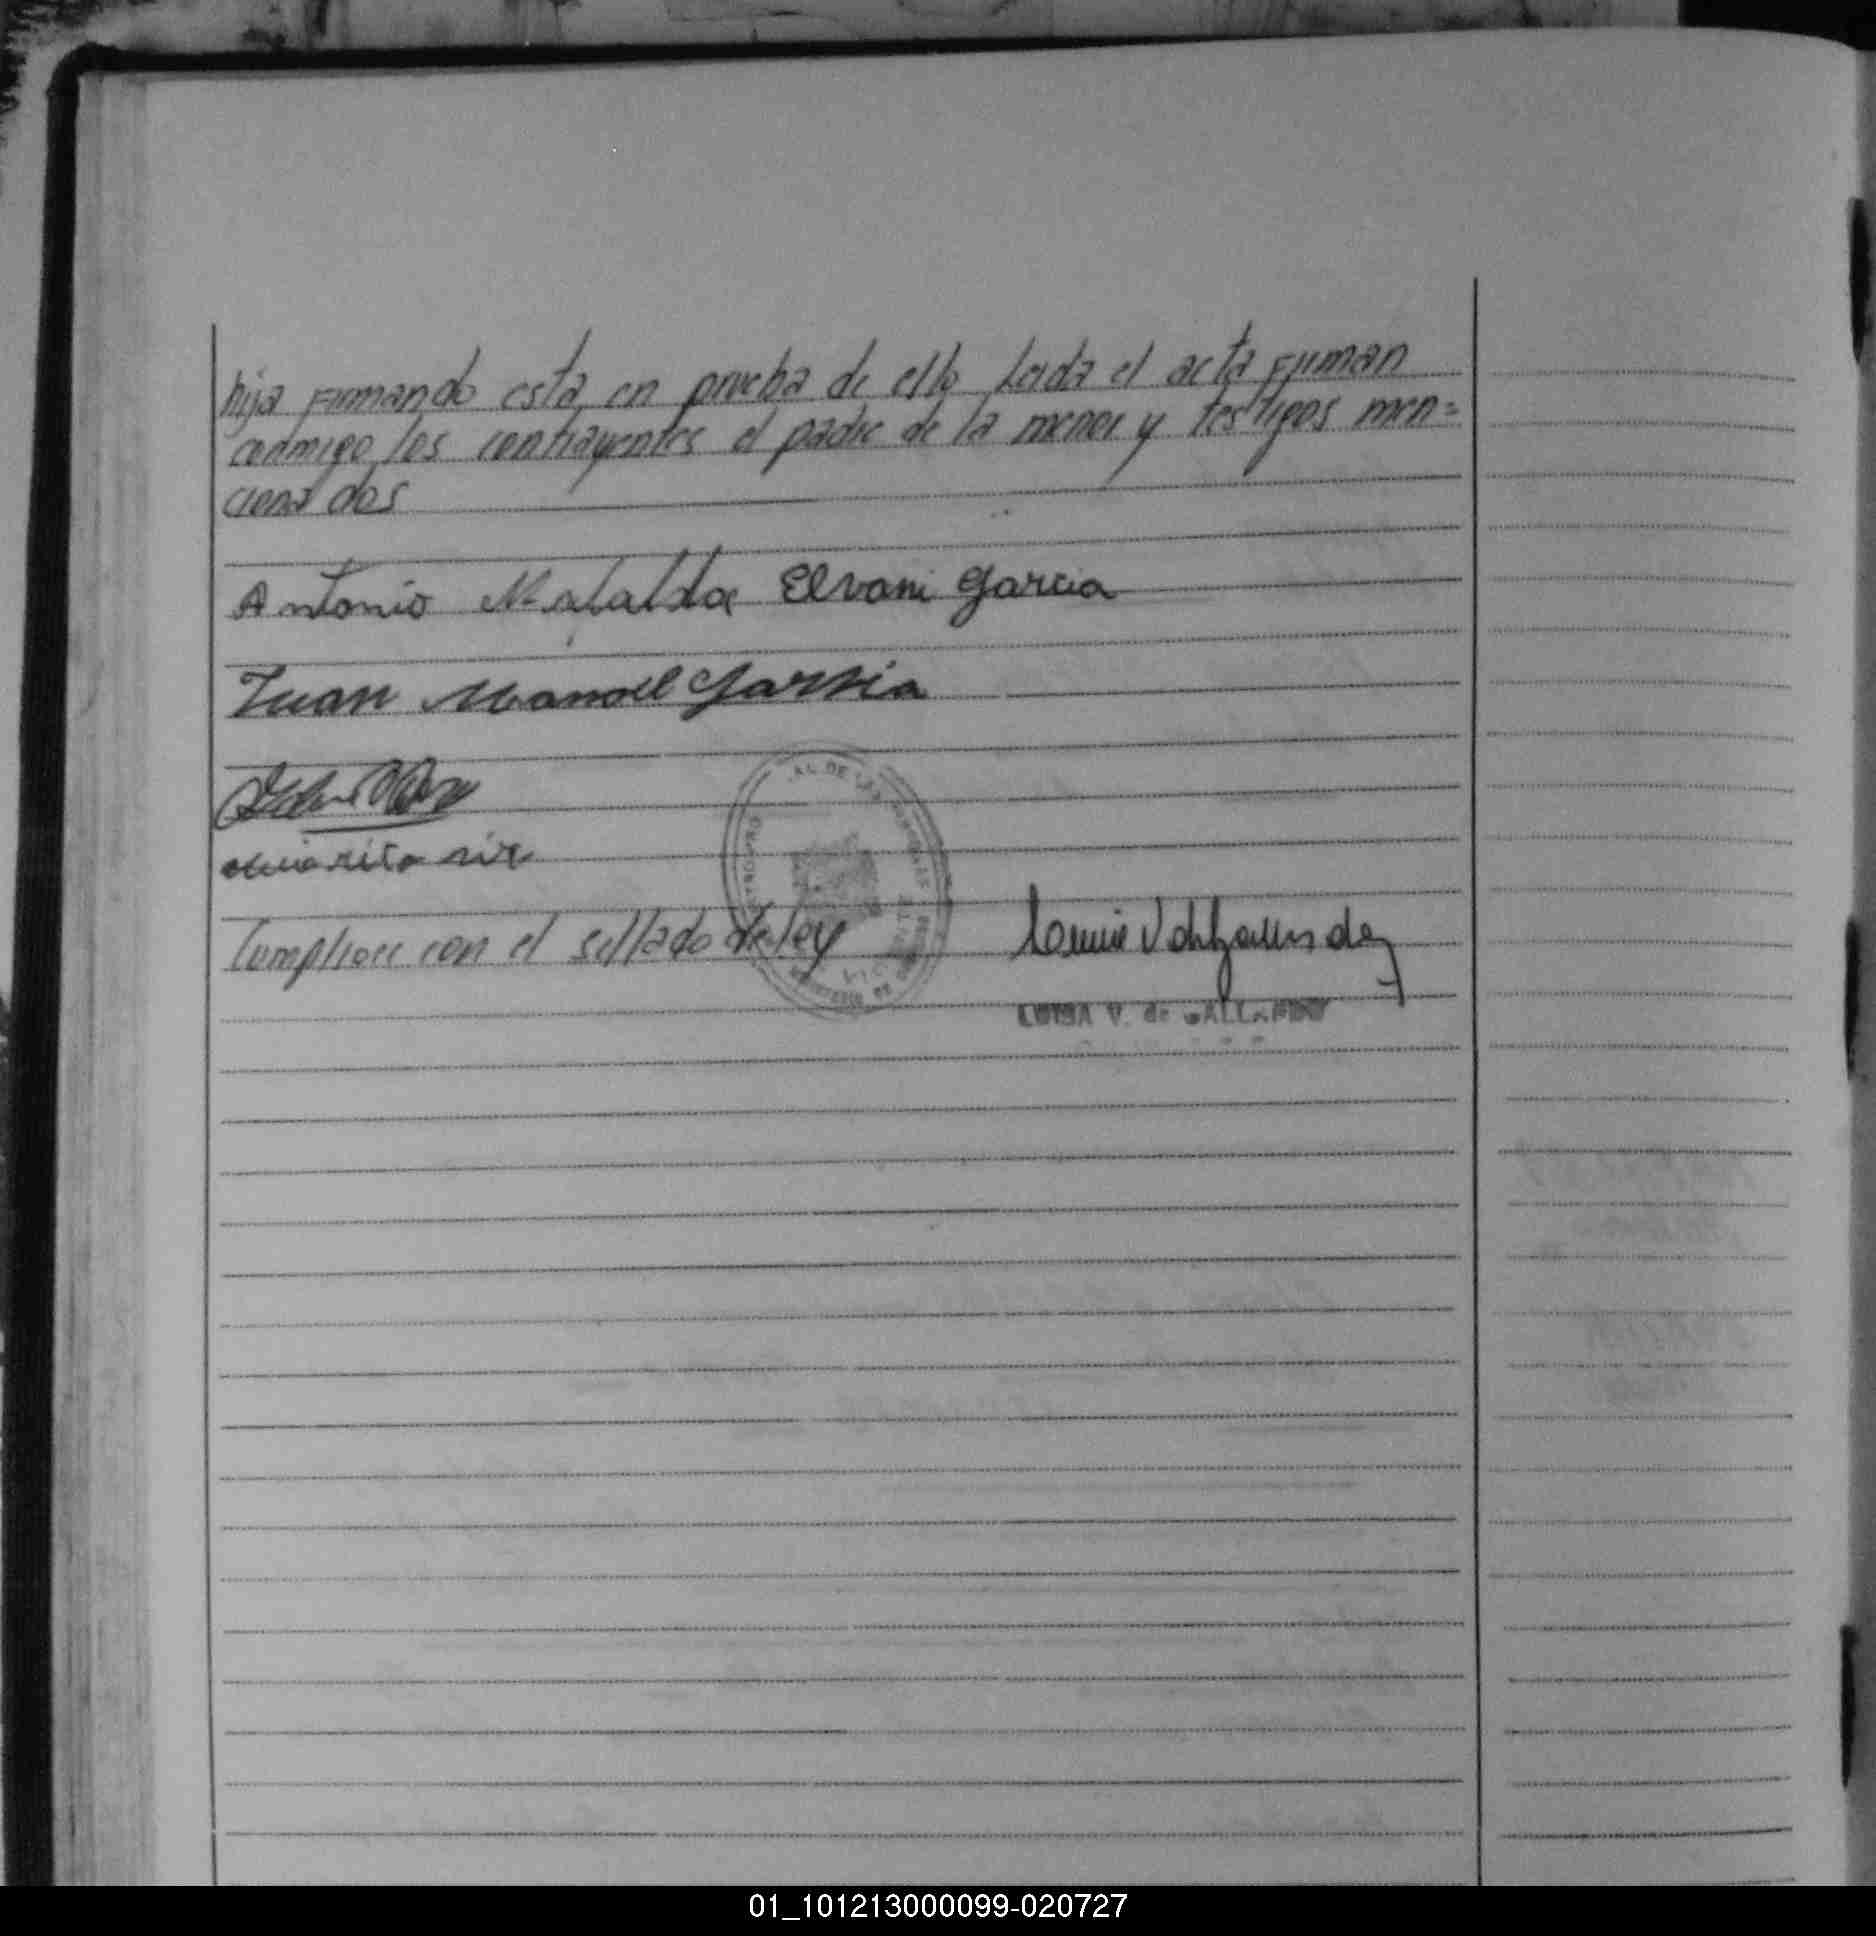 hija firmando esta en prueba de ello Leida el acta firman
conmigo los contrayentes el padre de la menor y testigos men=
cionados
Antonio Mafalda Elvani Garcia
Juan Manoel Garsia
Cumplioce con el sellado de ley
LUISA V. de GALLARDO
01_101213000099-020727